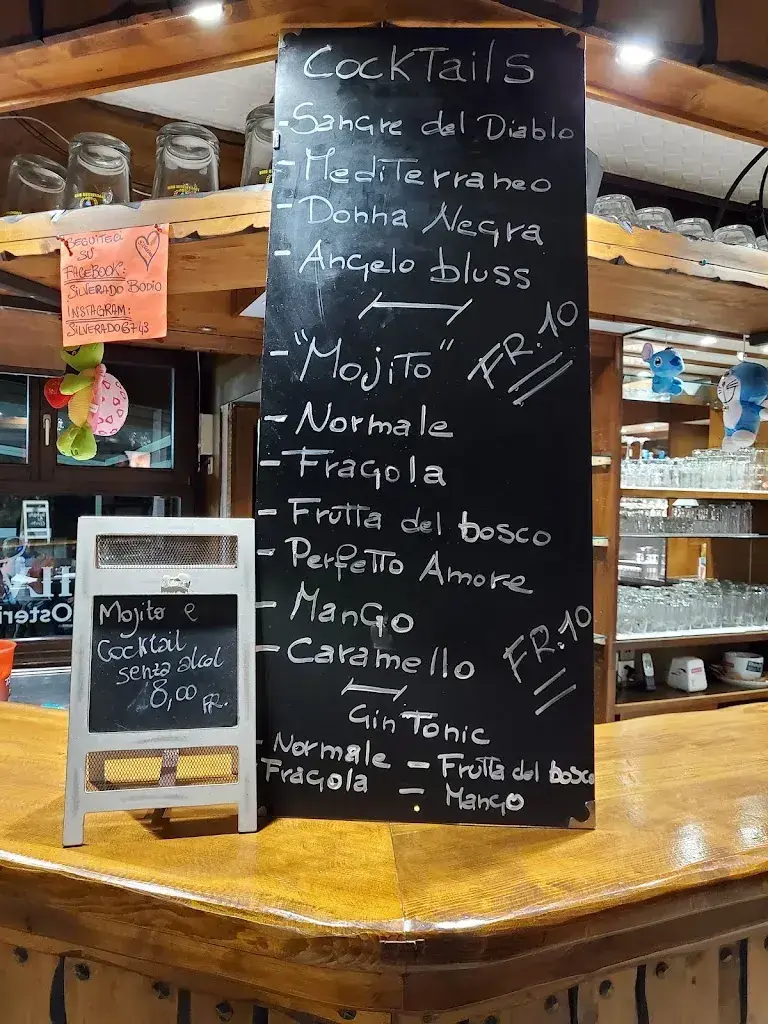 Cocktails
- Sangre del Diablo
- Mediterraneo
- Donna Negra
- Angelo bluss
- "Mojito" FR. 10
- Normale
- Fragola
- Frutta del bosco
- Perfetto Amore
- Mango
- Caramello FR. 10
Gin Tonic
- Normale - Frutta del bosco
Fragola - Mango
SEGUITECI
SU
FACEBOOK:
SILVERADO BODIO
INSTAGRAM:
SILVERADO6743
Mojito e
Cocktail
senza alcol
8,00 FR.
Osteri